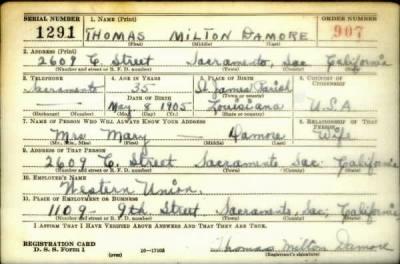 SERIAL NUMBER 1. NAME (Print) ORDER NUMBER
1291 THOMAS MILTON DAMORE 907
(First) (Middle) (Last)
2. ADDRESS (Print)
2609 C. Street Sacramento, Sac California
(Number and street or R. F. D. number) (Town) (County) (State)
3. TELEPHONE 4. AGE IN YEARS 5. PLACE OF BIRTH 6. COUNTRY OF CITIZENSHIP
Sacramento 35 St. James Parish
DATE OF BIRTH (Town or county)
May 8 1905 Louisiana U.S.A
(Exchange) (Number) (Mo.) (Day) (Yr.) (State or country)
7. NAME OF PERSON WHO WILL ALWAYS KNOW YOUR ADDRESS 8. RELATIONSHIP OF THAT PERSON
Mrs Mary Damore Wife
(Mr., Mrs., Miss) (First) (Middle) (Last)
9. ADDRESS OF THAT PERSON
2609 C. Street Sacramento Sac. California
(Number and street or R. F. D. number) (Town) (County) (State)
10. EMPLOYER'S NAME
Western Union.
11. PLACE OF EMPLOYMENT OR BUSINESS
1109 - 9th. Street Sacramento, Sac; California
(Number and street or R. F. D. number) (Town) (County) (State)
I AFFIRM THAT I HAVE VERIFIED ABOVE ANSWERS AND THAT THEY ARE TRUE.
REGISTRATION CARD
D. S. S. Form 1 (over) Thomas Milton Damore
(Registrant's signature)